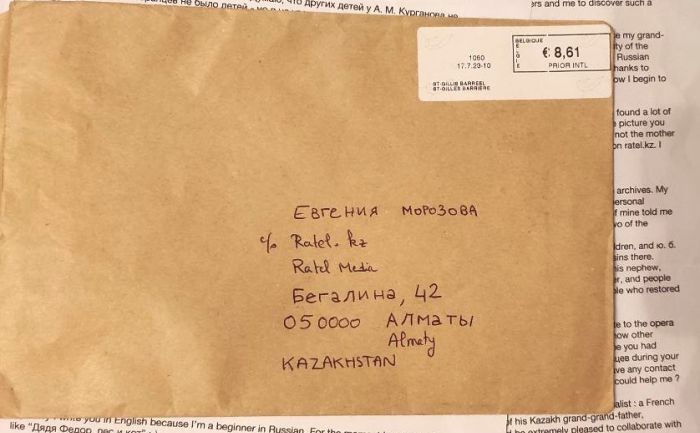 что других детей у А. М. Курганова не
не было детей
ers and me to discover such a
BELGIQUE
BELGIE
€: 8,61
PRIOR INTL
1060
17.7.23-10
ST-GILLIS BARREEL
ST-GILLES BARRIERE
ЕВГЕНИЯ МОРОЗОВА
c/o Ratel.kz
Ratel Media
Бегалина, 42
050000 АЛМАТЫ
Almaty
KAZAKHSTAN
e my grand-
ity of the
Russian
hanks to
ow I begin to
found a lot of
picture you
not the mother
on ratel.kz. I
archives. My
ersonal
f mine told me
vo of the
dren, and ю. б.
ins there.
is nephew,
er, and people
le who restored
e to the opera
ow other
e you had
цев during your
ve any contact
could help me ?
alist : a French
of his Kazakh grand-grand-father,
be extremely pleased to collaborate with
you in English because I'm a beginner in Russian. For the
like "Дядя Федор, пес и кот"